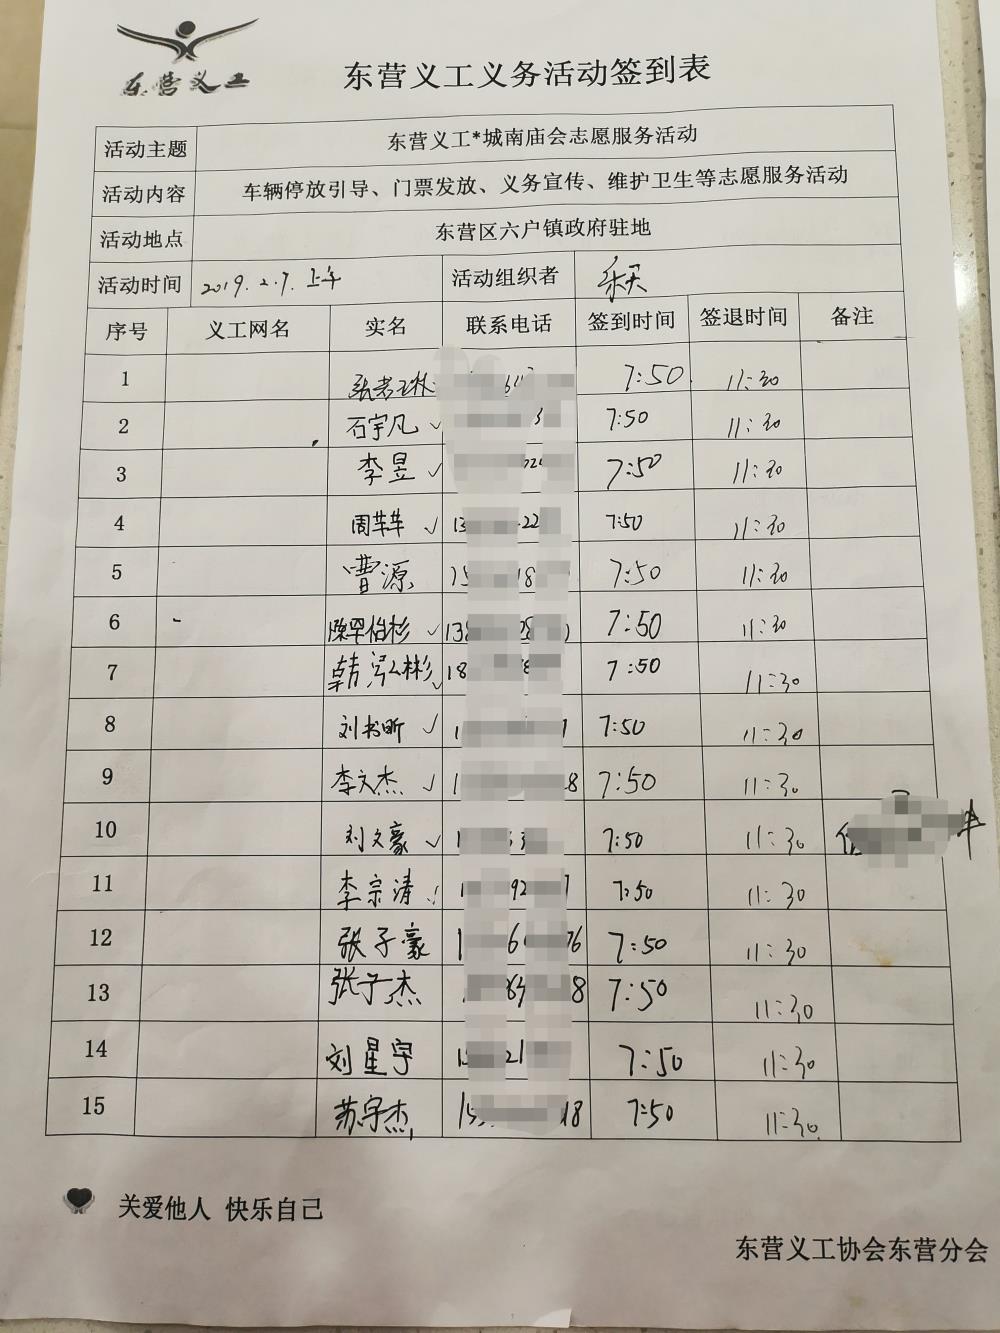 东营义工
东营义工义务活动签到表
活动主题 东营义工*城南庙会志愿服务活动
活动内容 车辆停放引导、门票发放、义务宣传、维护卫生等志愿服务活动
活动地点 东营区六户镇政府驻地
活动时间 2019.2.7.上午 活动组织者
序号 义工网名 实名 联系电话 签到时间 签退时间 备注
1 7:50 11:30
2 石宇凡 7:50 11:30
3 李昱 7:50 11:30
4 7:50 11:30
5 曹源 7:50 11:30
6 7:50 11:30
7 韩泓彬 7:50 11:30
8 刘书昕 7:50 11:30
9 李文杰 7:50 11:30
10 刘文豪 7:50 11:30
11 李宗清 7:50 11:30
12 张子豪 7:50 11:30
13 张子杰 7:50 11:30
14 刘星宇 7:50 11:30
15 苏宇杰 7:50 11:30
关爱他人 快乐自己
东营义工协会东营分会